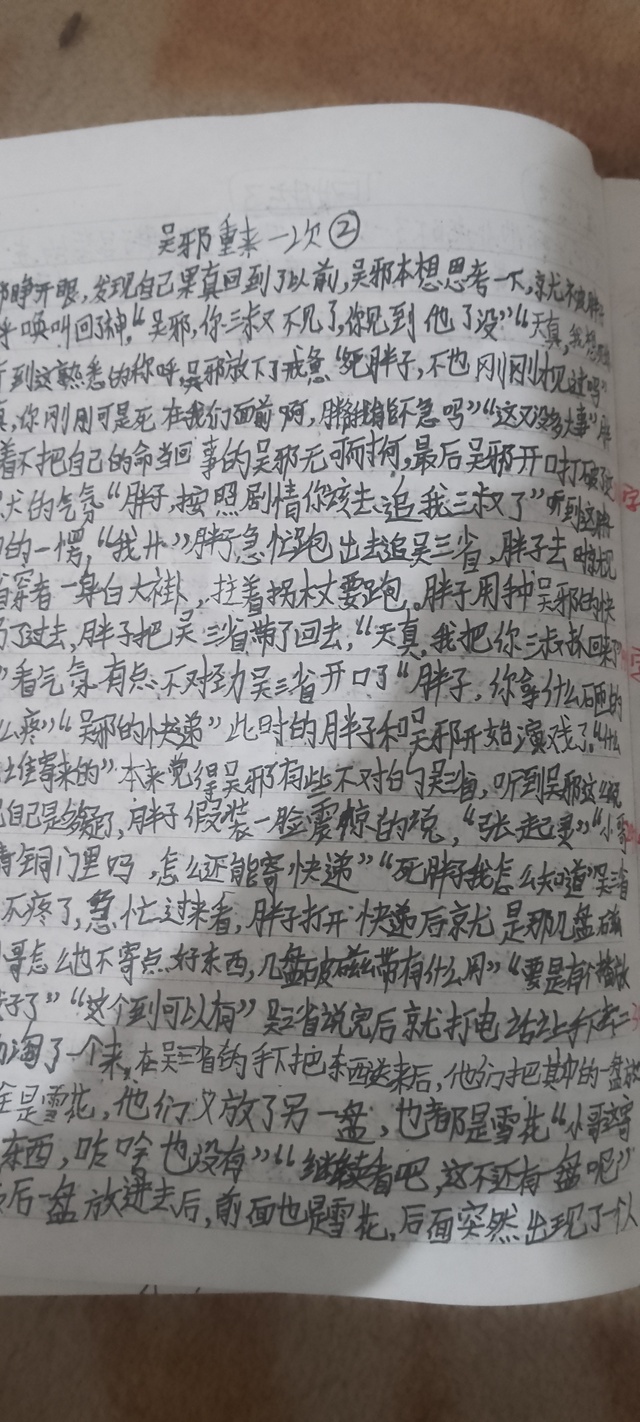 吴邪重来一次②
睁开眼，发现自己果真回到了以前，吴邪本想思考一下，就
呼唤叫回了神，“吴邪，你三叔又不见了，你见到他了没？”“天真，我
到这熟悉的称呼，吴邪放下了戒急“死胖子，不也刚刚才见过吗”
真，你刚刚可是死在我们面前啊，胖能不急吗”“这又没多大事”胖
着不把自己的命当回事的吴邪无可奈何，最后吴邪开口打破了
的气氛“胖子，按照剧情你该去追我三叔了”听到这
的一愣，“我”胖子急忙跑出去追吴三省，胖子去时
穿着一身白大褂，拄着拐杖要跑，胖子用手中吴邪的快
了过去，胖子把吴三省带了回去，“天真，我把你三叔抓回来了
”看气氛有点不对劲吴三省开口了“胖子，你拿什么砸的
么疼”“吴邪的快递”此时的胖子和吴邪开始演戏了。“什么
谁寄来的”本来觉得吴邪有些不对的吴三省，听到吴邪这么说
自己是多疑了，胖子假装一脸震惊的说，“张起灵”“小哥
青铜门里吗，怎么还能寄快递”“死胖子我怎么知道”吴三省
不疼了，急忙过来看，胖子打开快递后就是那几盘磁
哥怎么也不寄点好东西，几盘破磁带有什么用”“要是有个播放
好了”“这个到可以有”吴三省说完后就打电话让手下去二
淘了一个来，在吴三省的手下把东西送来后，他们把其中的一盘放
全是雪花，他们又放了另一盘，也都是雪花“小哥这寄
东西，咕啥也没有”“继续看吧，这不还有一盘呢”
后一盘放进去后，前面也是雪花，后面突然出现了一个人